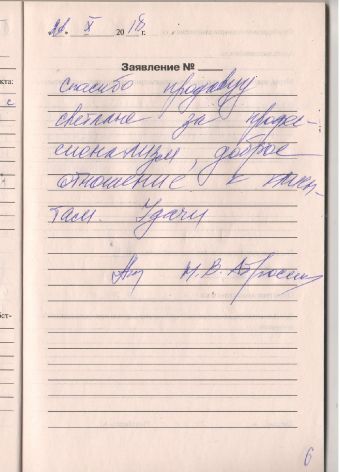 21. X 2018 г.
Заявление №
спасибо продавцу
светлане за профес-
сионализм, доброе
отношение к клиен-
там. Удачи
Н.В. Абросим
кта:
с
ст-
6